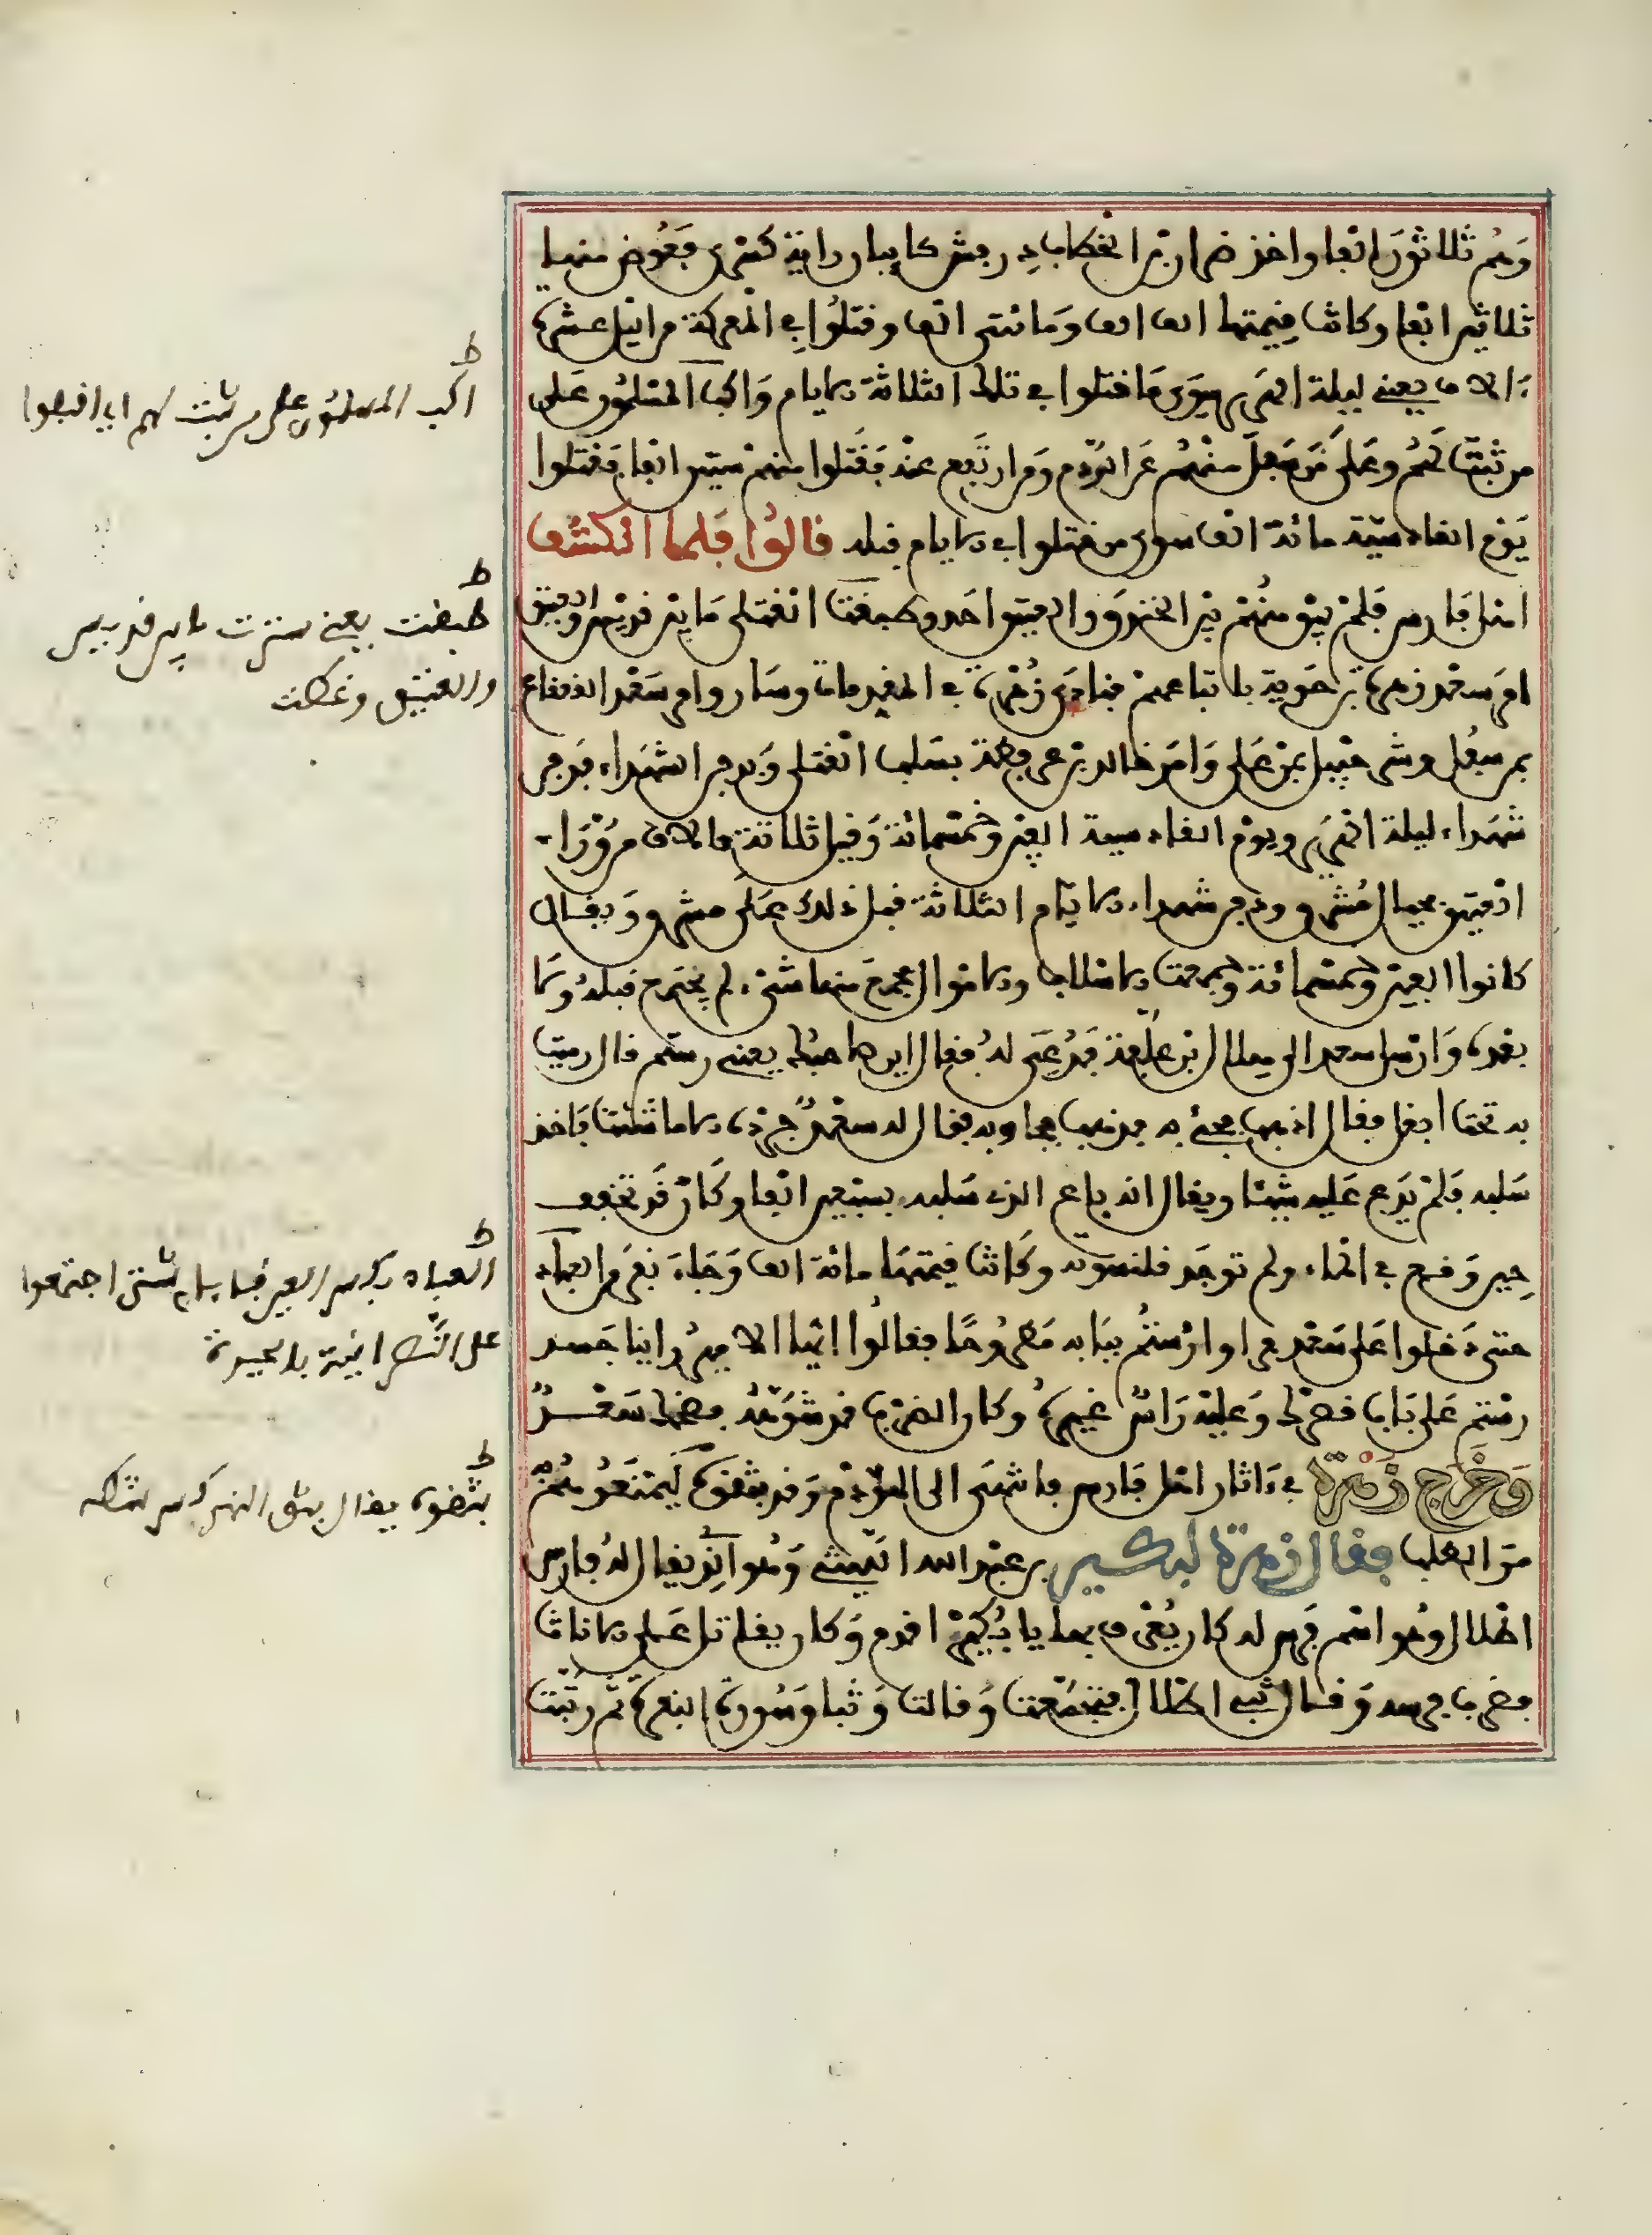 وهم ثلاثون الفا واخذ ضرار بن الخطاب درفش كابيان راية كسرى فعوض منها
ثلاثين الفا وكانت قيمتها الف الف ومائتي الف وقتلوا في المعركة من اليل عشرة
ءالاف يعني ليلة الهرير سوى ما قتلوا في تلك الثلاثة الايام واكب المسلمون على
من ثبت لهم وعلى من سفل منهم عن الردم ومن ارتفع عنه فقتلوا منهم ستين الفا فقتلوا
يوم القادسية مائة الف سوى من قتلوا في الايام قبله قالوا فلما انكشف
اهل فارس فلم يبق منهم بين الخندق والعتيق احد وطبقت القتلى ما بين قديس والعتيق
امر سعد زهرة بن حوية باتباعهم فنادى زهرة في المقدمات وسار وامر سعد القعقاع
بمن سفل وشرحبيل بمن على وامر خالد بن عرفطة بسلب القتلى وبدفن الشهداء فدفن
شهداء ليلة الهرير ويوم القادسية الفين وخمسمائة وقيل ثلاثة ءالاف من وراء
العتيق بحيال مشرق ودفن شهداء الايام الثلاثة قبل ذلك على مشرق ويقال
كانوا الفين وخمسمائة وجمعت الاسلاب والاموال فجمع منها شيء لم يجمع قبله ولا
بعده وارسل سعد الى هلال بن علفة فدعى له فقال اين صاحبك يعني رستم قال رميت
به تحت ابغل فقال اذهب فجئ به فذهب فجاء به فقال له سعد جرده الا ما شئت فاخذ
سلبه فلم يدع عليه شيئا ويقال انه باع الذي سلبه بسبعين الفا وكان قد تخفف
حين وقع في الماء ولم توجد قلنسوته وكانت قيمتها مائة الف وجاء نفر من العباد
حتى دخلوا على سعد فراوا رستم ببابه مطروحا فقالوا ايها الامير راينا جسد
رستم على باب قصرك وعليه راس غيره وكان الضرب قد شوهه فضحك سعد
وخرج زهرة في ءاثار اهل فارس فانتهى الى الردم وقد بثقوه ليمنعوهم به
من الطلب فقال زهرة لبكير بن عبد الله الليثي وهو الذي يقال له فارس
اطلال وهو اسم فرس له كان يعرف بها يا بكير اقدم وكان يقاتل على الاناث
فضرب فرسه وقال ثبي اطلال فتجمعت وقالت وثبا وسورة البقرة ثم وثبت
ط
اكب المسلمون على من ثبت لهم اي اقبلوا
ط
طبقت يعني سترت ما بين قديس
والعتيق وغطت
ط
العباد بكسر العين قبايل شتى اجتمعوا
على النصرانية بالحيرة
ط
بثقوه يقال بثق النهر كسر شطه